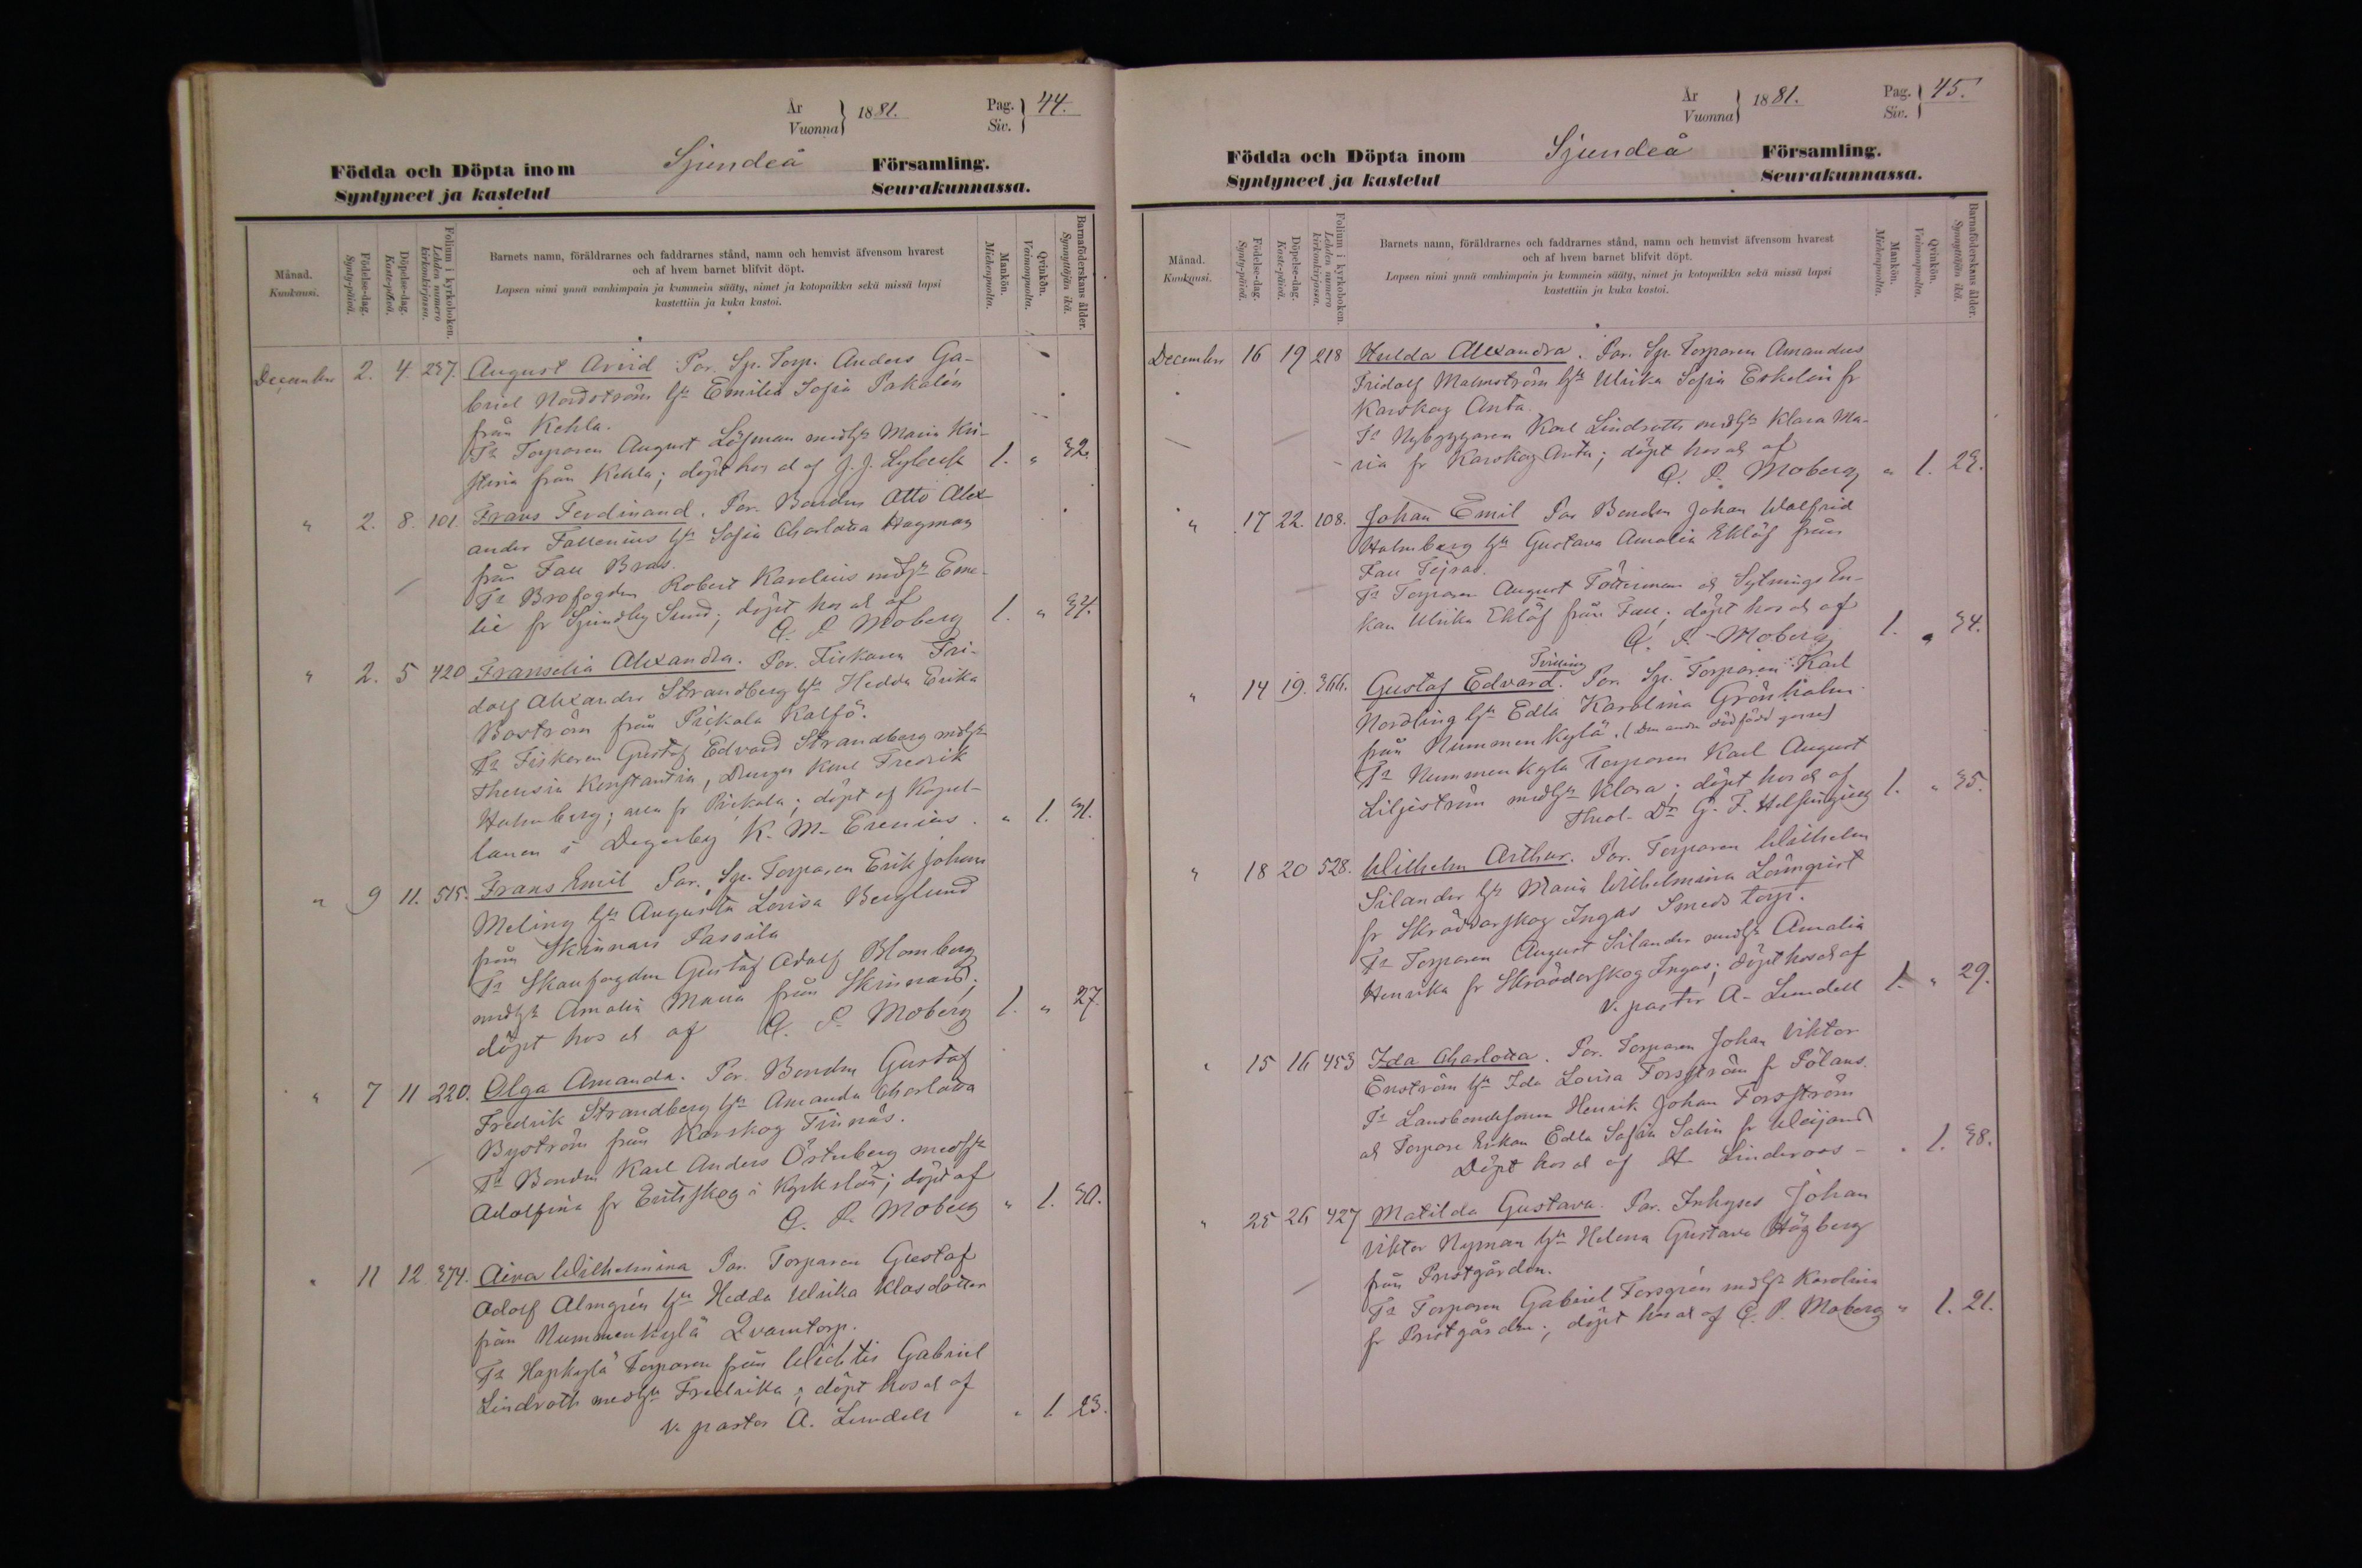 År
Vuonna } 1881.
Pag.
Siv. } 44.
Födda och Döpta inom Sjundeå Församling.
Syntyneet ja kastetut Seurakunnassa.
Månad.
Kuukausi.
Födelse-dag.
Synty-päivä.
Döpelse-dag.
Kaste-päivä.
Folium i kyrkoboken.
Lehden numero kirkonkirjassa.
Barnets namn, föräldrarnes och faddrarnes stånd, namn och hemvist äfvensom hvarest
och af hvem barnet blifvit döpt.
Lapsen nimi ynnä vanhimpain ja kummein sääty, nimet ja kotopaikka sekä missä lapsi
kastettiin ja kuka kastoi.
Mankön.
Miehenpuolta.
Qvinkön.
Vaimonpuolta.
Barnaföderskans ålder.
Synnyttäjän ikä.
December 2. 4. 237. August Arvid Par. Sp. Torp. Anders Ga-
briel Nordström hu Emilia Sofia Pakalén
från Kehla.
Fr Torparen August Löfman med hu Maria Kri-
stina från Kehla; döpt hos d af J. J. 1. " 32.
" 2. 8. 101. Frans Ferdinand. Par. Bonden Otto Alex-
ander Fallenius hu Sofia Charlotta Hagman
från Fall Bras.
Fr Brofogden Robert Karelius med hu Eme-
lie fr Sjundby Sund; döpt hos d af
Q. P. Moberg 1. " 34.
" 2. 5 420 Franselia Alexandra. Par. Fiskaren Fri-
dolf Alexander Strandberg hu Hedda Erika
Boström från Pickala Kalfö.
Fr Fiskaren Gustaf Edvard Strandberg med hu
Theresia Konstantia, Drengen Karl Fredrik
Holmberg; alla fr Pickala; döpt af Kapel-
lanen i Degerby K. M. Erenius. " 1. 31.
" 9 11. 515. Frans Emil Par. Sp. Torparen Erik Johan
Meling hu Augusta Lovisa Berglund
från Skinnars Passila
Fr Skaufogden Gustaf Adolf Blomberg
med hu Amalia Maria från Skinnars;
döpt hos d af Q. P. Moberg 1. " 27.
" 7 11 220. Olga Amanda. Par. Bonden Gustaf
Fredrik Strandberg hu Amanda Charlotta
Byström från Karskog Finnäs.
Fr Bonden Karl Anders Österberg med hu
Adolfina fr Eriksskog i Kyrkslätt; döpt af
Q. P. Moberg " 1. 30.
" 11 12 374. Aina Wilhelmina Par. Torparen Gustaf
Adolf Almgrén hu Hedda Ulrika Klasdotter
från Nummenkylä Qvarntorp.
Fr Hapkylä Torparen från Wichtis Gabriel
Lindroth med hu Fredrika; döpt hos d af
v. pastor A. Lundell " 1. 23.
År
Vuonna } 1881.
Pag.
Siv. } 45.
Födda och Döpta inom Sjundeå Församling.
Syntyneet ja kastetut Seurakunnassa.
Månad.
Kuukausi.
Födelse-dag.
Synty-päivä.
Döpelse-dag.
Kaste-päivä.
Folium i kyrkoboken.
Lehden numero kirkonkirjassa.
Barnets namn, föräldrarnes och faddrarnes stånd, namn och hemvist äfvensom hvarest
och af hvem barnet blifvit döpt.
Lapsen nimi ynnä vanhimpain ja kummein sääty, nimet ja kotopaikka sekä missä lapsi
kastettiin ja kuka kastoi.
Mankön.
Miehenpuolta.
Qvinkön.
Vaimonpuolta.
Barnaföderskans ålder.
Synnyttäjän ikä.
December 16 19 218 Hulda Alexandra. Par. Sp. Torparen Amandus
Fridolf Malmström hu Ulrika Sofia Eskelin fr
Karskog Anta.
Fr Nybyggaren Karl Lindroth med hu Klara Ma-
ria fr Karskog Anta; döpt hos d af
Q. P. Moberg " 1. 23.
" 17 22. 108. Johan Emil Par Bonden Johan Walfrid
Holmberg hu Gustava Amalia Eklöf från
Fall Tejras.
Fr Torparen August Fötterman d Sytnings En-
kan Ulrika Eklöf från Fall; döpt hos d af
Q. P. Moberg 1. " 34.
Tvilling
" 14 19. 366. Gustaf Edvard. Par. Sp. Torparen Karl
Nordling hu Edla Karolina Grönholm
från Nummenkylä. (Den andra dödfödd gosse)
Fr Nummenkyla Torparen Karl August
Liljeström med hu Klara; döpt hos d af
Theol. Dr G. F. Helsingius 1. " 35.
" 18 20 528. Wilhelm Arthur. Par. Torparen Wilhelm
Silander hu Maria Wilhelmina Lönnqvist
fr Skräddarskog Ingas Smeds torp.
Fr Torparen August Silander med hu Amalia
Henrika fr Skräddarskog Ingas; döpt hos d af
v. pastor A. Lundell 1. " 29.
" 15 16 453 Ida Charlotta. Par. Torparen Johan Viktor
Enström hu Ida Lovisa Forsström fr Pölans.
Fr Landbondesonen Henrik Johan Forsström
d Torpare Enkan Edla Sofia Salin fr
Döpt hos d af Lindroos " 1. 38.
" 25 26 427 Matilda Gustava. Par. Inhyses Johan
Viktor Nyman hu Helena Gustava Högberg
från Prestgården.
Fr Torparen Gabriel Forsgrén med hu Karolina
fr Prestgården; döpt hos d af Q. P. Moberg " 1. 21.